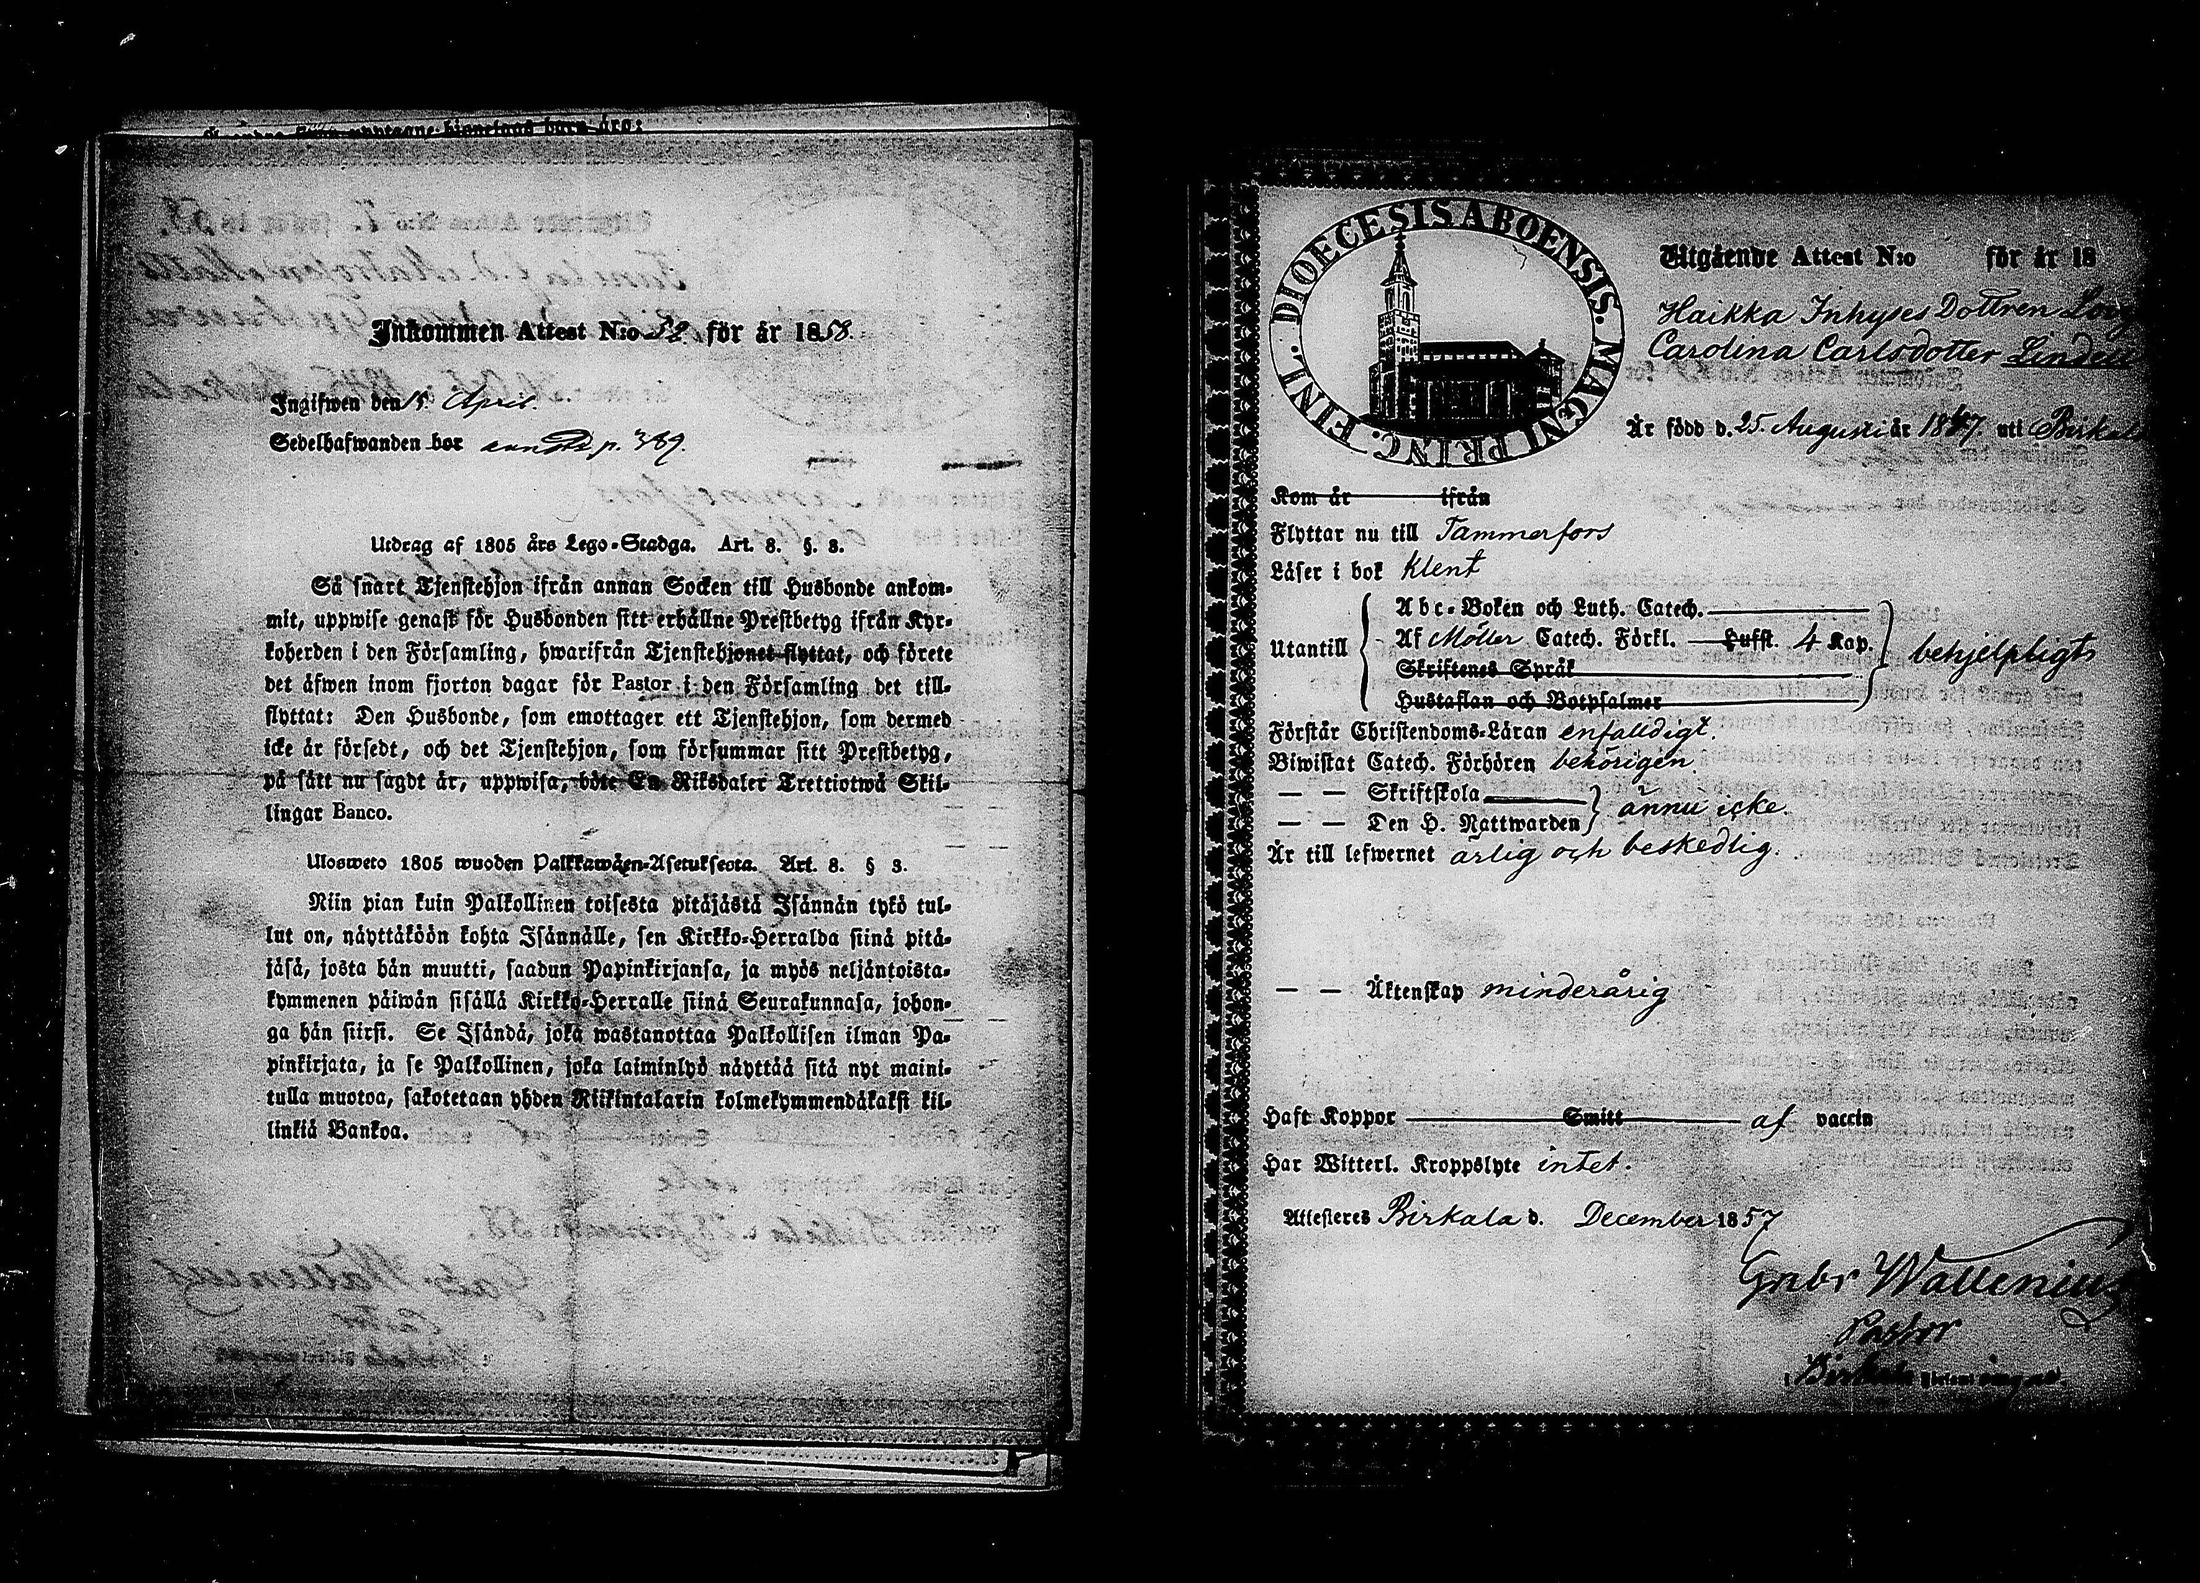 Inkommen Attest N:o 52 för år 1858.
Ingifwen den 15 April.
Sedelhafwanden bor p. 389.
Utdrag af 1805 års Lego-Stadga. Art. 8. §. 3.
Så snart Tjenstehjon ifrån annan Socken till Husbonde ankom-
mit, uppwise genast för Husbonden sitt erhållne Prestbetyg ifrån Kyr-
koherden i den Församling, hwarifrån Tjenstehjonet flyttat, och förete
det äfwen inom fjorton dagar för Pastor i den Församling det till-
flyttat: Den Husbonde, som emottager ett Tjenstehjon, som dermed
icke är försedt, och det Tjenstehjon, som försummar sitt Prestbetyg,
på sätt nu sagdt är, uppwisa, böte En Riksdaler Trettiotwå Skil-
lingar Banco.
Ulosweto 1805 wuoden Palkkawäen-Asetuksesta. Art. 8. § 3.
Niin pian kuin Palkollinen toisesta pitäjästä Isännän tykö tul-
lut on, näyttäköön kohta Isännälle, sen Kirkko-Herralda siinä pitä-
jäsä, josta hän muutti, saadun Papinkirjansa, ja myös neljäntoista-
kymmenen päiwän sisällä Kirkko-Herralle siinä Seurakunnasa, johon-
ga hän siirsi. Se Isändä, joka wastanottaa Palkollisen ilman Pa-
pinkirjata, ja se Palkollinen, joka laiminlyö näyttää sitä nyt maini-
tulla muotoa, sakotetaan yhden Riikintalarin kolmekymmendäkaksi kil-
linkiä Bankoa.
DIOECESIS ABOENSIS. MAGNI PRINC. FINL.
Utgående Attest N:o för år 18
Haikka Inhyses Dottren
Carolina Carlsdotter Lindell
Är född d. 25 Augusti år 1847 uti Birkala
Kom år ifrån
Flyttar nu till Tammerfors
Läser i bok klent
Abc-Boken och Luth. Catech.
Utantill Af Möller Catech. Förkl. Hufst. 4 Kap. behjelpligt
Skriftenes Språk
Hustaflan och Botpsalmer
Förstår Christendoms-Läran enfaldigt.
Biwistat Catech. Förhören behörigen.
— — Skriftskola
— — Den H. Nattwarden ännu icke.
Är till lefwernet ärlig och beskedlig.
— — Äktenskap minderårig
Haft Koppor Smitt af vaccin
Har Witterl. Kroppslyte intet.
Attesteres Birkala d. December 1857
Gabr Wallenius
Pastor
i Birkala